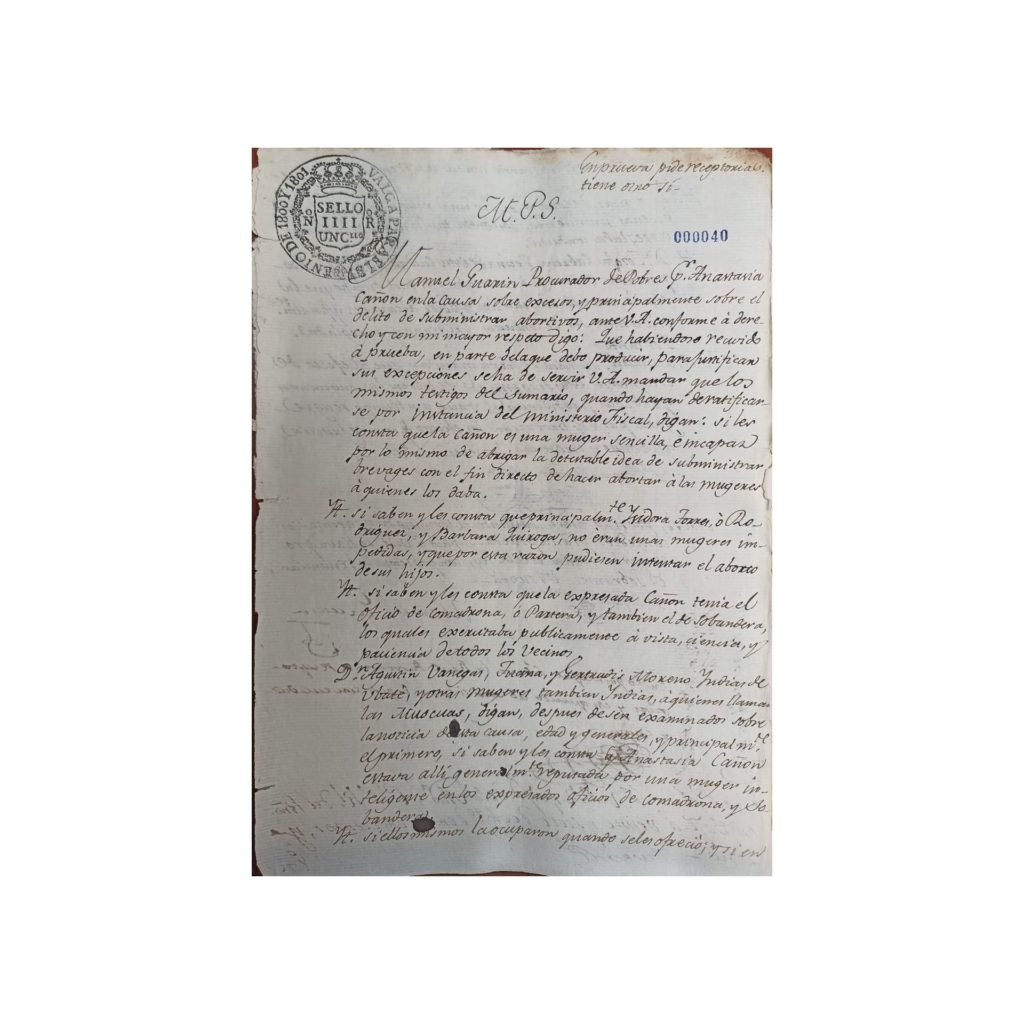 En prueva pide receptorias
tiene otro si-
SELLO
IIII
UNC.llo
VALGA PARA EL BIENIO DE 1800 Y 1801
N.O R
M.P.S.
000040
Manuel Guarin Procurador de Pobres P.r Anastasia
Cañon en la causa sobre excesos, y principalmente sobre el
delito de subministrar abortivos, ante V.A. conforme à dere-
cho y con mi mayor respeto digo: Que habiendose recivido
à prueba, en parte dela que debo producir, para justificar
sus excepciones seha de servir V.A. mandar que los
mismos testigos del sumario, quando hayan de ratificar-
se por instancia del ministerio Fiscal, digan: si les
consta quela Cañon es una muger sencilla, è incapaz
por lo mismo de abrigar la detestable idea de subministrar
brevages con el fin directo de hacer abortar à las mugeres
à quienes los daba.
Yt. si saben y les consta que principalm.te Ysidora Torres, ò Ro-
driguez, y Barbara Quiroga, no èran unas mugeres im-
pedidas, y que por esta razon pudiesen intentar el aborto
de sus hijos.
Yt. si saben y les consta quela expresada Cañon tenia el
oficio de comadrona, ò Partera, y tambien el de Sobandera,
los quales execùtaba publicamente à vista, ciencia, y
paciencia de todos los Vecinos.
D.n Agustin Vanegas, Juana, y Gertrudis Moreno Yndias de
Ubatè, y otras mugeres tambien Yndias, à quienes llaman
las Muscuas, digan, despues de ser examinados sobre
la noticia de esta causa, edad y generales, y principalm.te
el primero, si saben y les consta q.e Anastasia Cañon
estava allì generalm.te reputada por una muger in-
teligente en los expresados oficios de comadrona, y So-
bandera.
Yt. si ellos mismos la ocuparon quando seles ofreciò; y si en